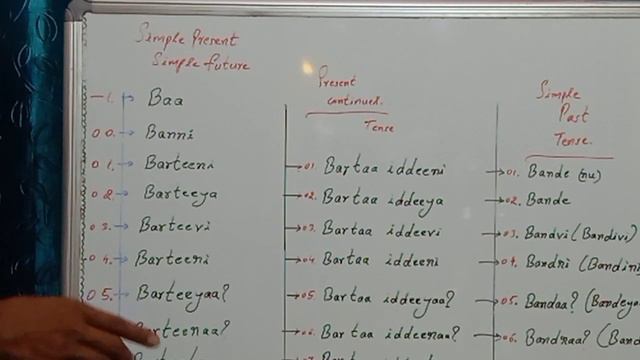 Simple Present
Simple future
-1. Baa
00. Banni
01. Barteeni
02. Barteeya
03. Barteevi
04. Barteeri
05. Barteeyaa?
arteenaa?
Present
continued.
Tense
01. Bartaa iddeeni
02. Bartaa iddeeya
03. Bartaa iddeevi
04 Bartaa iddeeni
05. Bartaa iddeeyaa?
06. Bartaa iddeenaa?
Simple
Past
Tense.
01. Bande (nu)
02. Bande
03. Bandvi (Bandivi)
04. Bandri (Bandiri
05. Bandaa? (Bandeya
06. Bandnaa? (Band